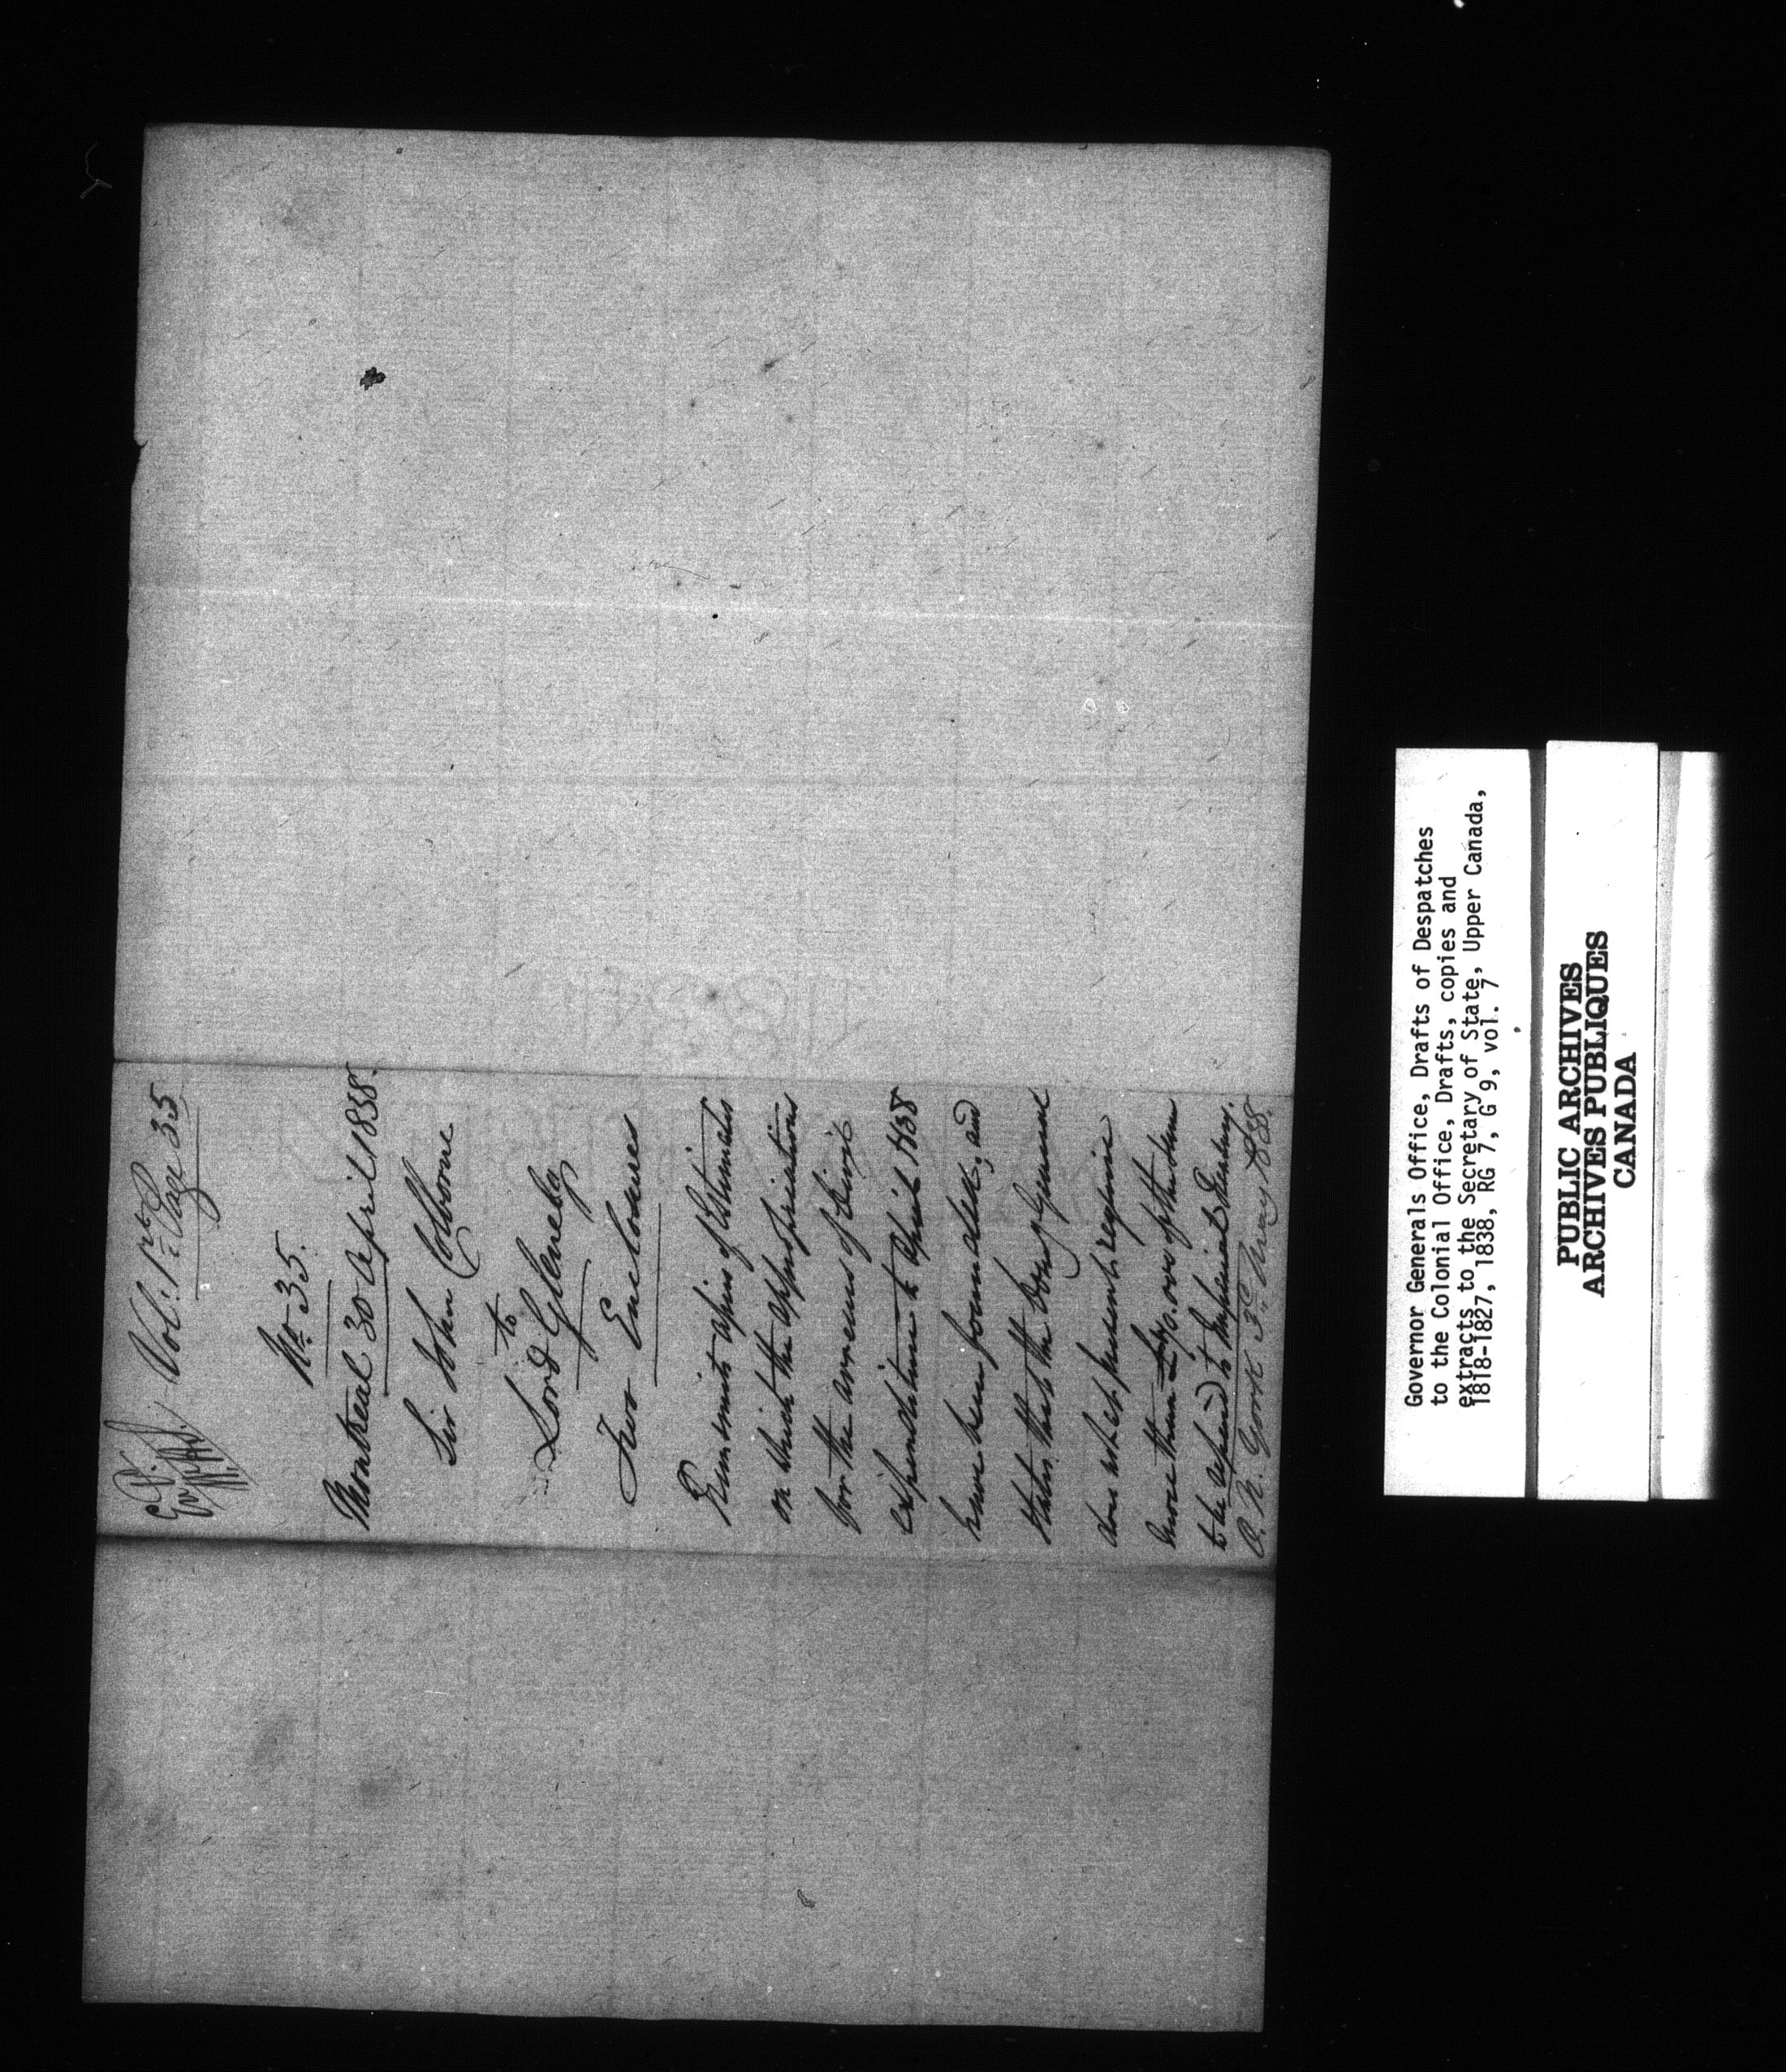 Vol: 1st Page 35
No. 35.
Montreal 30 April 1838.
Sir John Colborne
to
Lord Glenelg
Two Enclosures
Transmits copies of Estimates
on which the appropriations
for the arrears of
expenditure to April 1838
have been founded, and
states that the Govr General
does not at present require
more than to be
to be repaid to Imperial Treasury.
N. York 3d May 1838.
Governor Generals Office, Drafts of Despatches
to the Colonial Office, Drafts, copies and
extracts to the Secretary of State, Upper Canada,
1818-1827, 1838, RG 7, G 9, vol. 7
PUBLIC ARCHIVES
ARCHIVES PUBLIQUES
CANADA